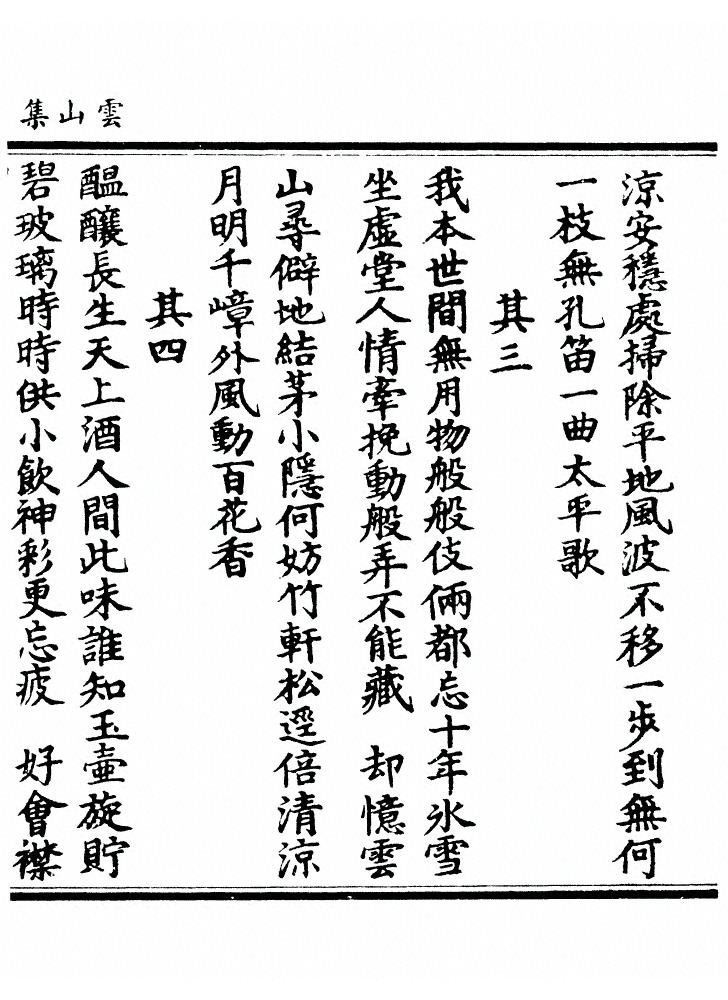 雲山集
涼安穩處掃除平地風波不移一步到無何
一枝無孔笛一曲太平歌
其三
我本世間無用物般般伎倆都忘十年氷雪
坐虛堂人情牽挽動般弄不能藏　却憶雲
山尋僻地結茅小隱何妨竹軒松逕倍清涼
月明千嶂外風動百花香
其四
醖釀長生天上酒人間此味誰知玉壷旋貯
碧玻璃時時供小飲神彩更忘疲　好會襟